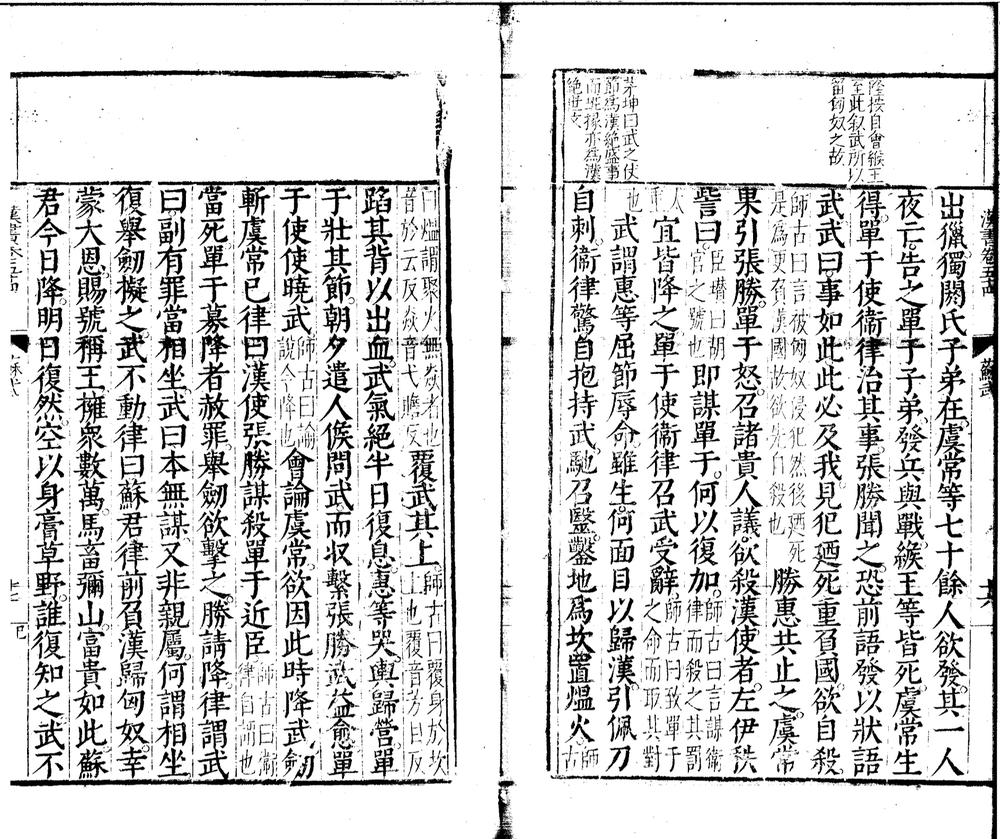 隆按自會緱王
至此叙武所以
留匈奴之故
茅坤曰武之使
節為漢絶盛事
而班掾亦為漢
絶世文
漢書卷五十四
蘇武
出獵獨閼氏子弟在虞常等七十餘人欲發其一人
夜亡告之單于子弟發兵與戰緱王等皆死虞常生
得單于使衞律治其事張勝聞之恐前語發以狀語
武武曰事如此此必及我見犯廼死重負國欲自殺
師古曰言被匈奴浸犯然後廼死
是為更負漢國故欲先自殺也
勝惠共止之虞常
果引張勝單于怒召諸貴人議欲殺漢使者左伊秩
訾曰
臣瓉曰胡
官之號也
即謀單于何以復加
師古曰言謀衞
律而殺之其罰
太
重也
宜皆降之單于使衞律召武受辭
師古曰致單于
之命而取其對
也
武謂惠等屈節辱命雖生何面目以歸漢引佩刀
自刺衞律驚自抱持武馳召毉鑿地為坎置熅火
師
古
曰熅謂聚火無焱者也
音於云反焱音弋贍反
覆武其上
師古曰覆身於坎
上也覆音芳目反
蹈其背以出血武氣絶半日復息惠等哭輿歸營單
于壯其節朝夕遣人候問武而収繫張勝武益愈單
于使使曉武
師古曰諭
說令降也
會論虞常欲因此時降武劒
斬虞常已律曰漢使張勝謀殺單于近臣
師古曰衞
律自謂也
當死單于募降者赦罪舉劒欲擊之勝請降律謂武
曰副有罪當相坐武曰本無謀又非親屬何謂相坐
復舉劒擬之武不動律曰蘇君律前負漢歸匈奴幸
蒙大恩賜號稱王擁衆數萬馬畜彌山富貴如此蘇
君今日降明日復然空以身膏草野誰復知之武不
漢書卷五十四
蘇武
十七